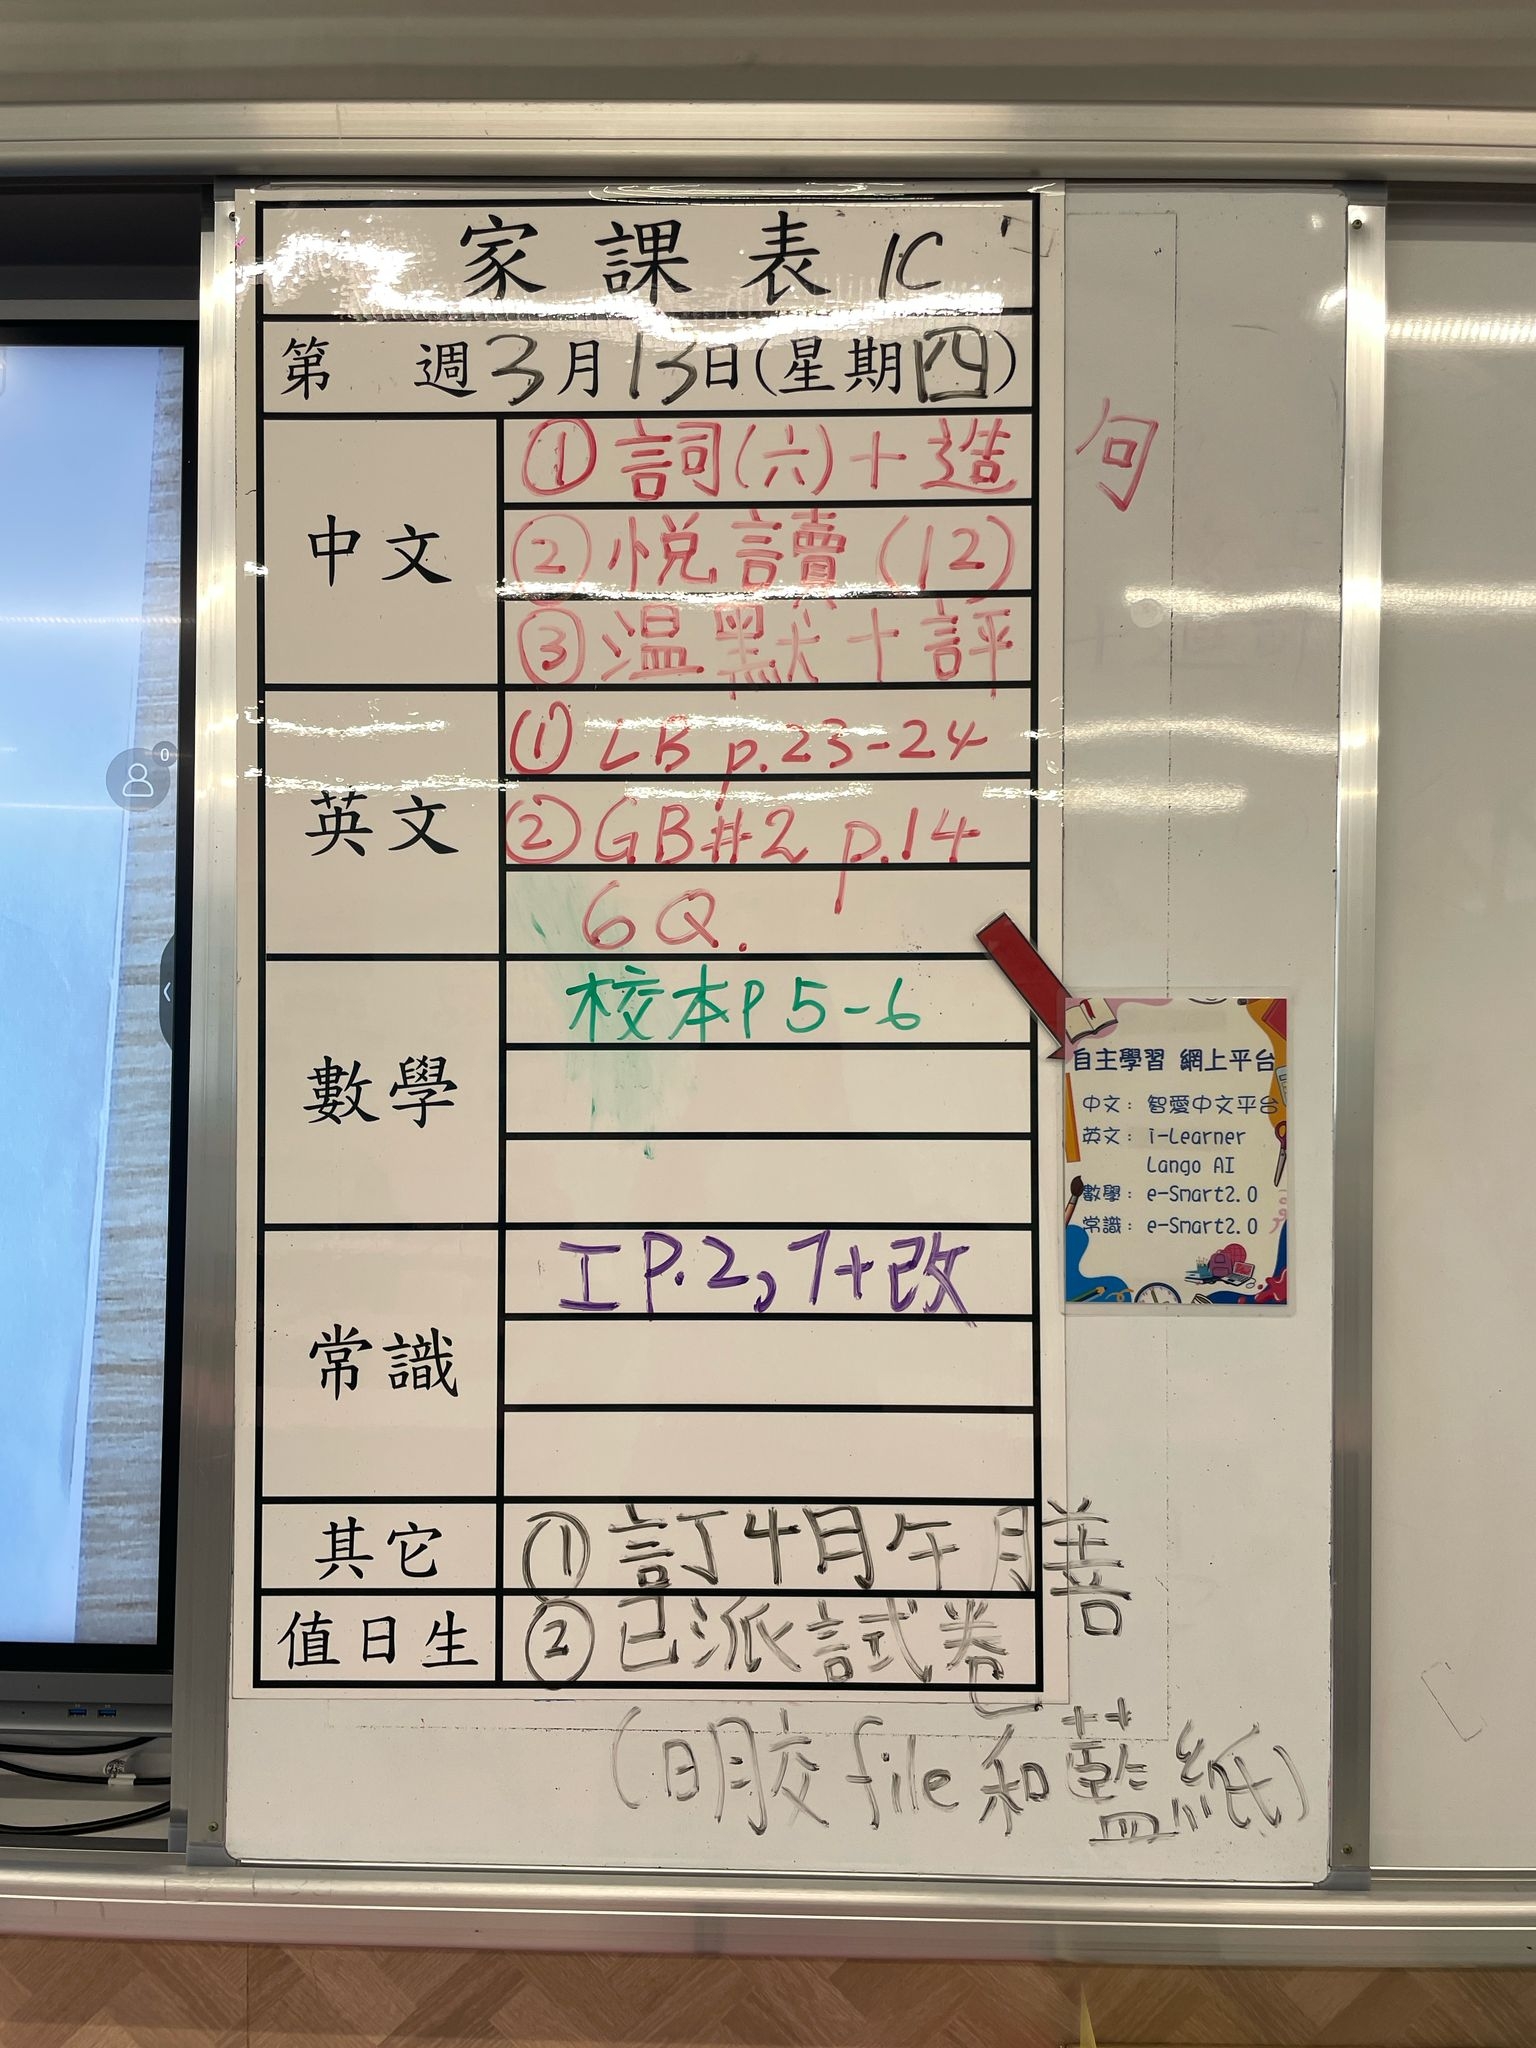 家課表 1C
第 週3月13日(星期四)
中文
① 詞(六)+造句
② 悅讀 (12)
③ 温默+評
英文
① LB p.23-24
② GB#2 p.14
6Q.
數學
校本P 5-6
常識
工 P.2, 7+改
其它
① 訂4月午膳
值日生
② 已派試卷
(明交file和藍紙)
自主學習 網上平台
中文: 智愛中文平台
英文: i-Learner
Lango AI
數學: e-Smart2.0
常識: e-Smart2.0
0